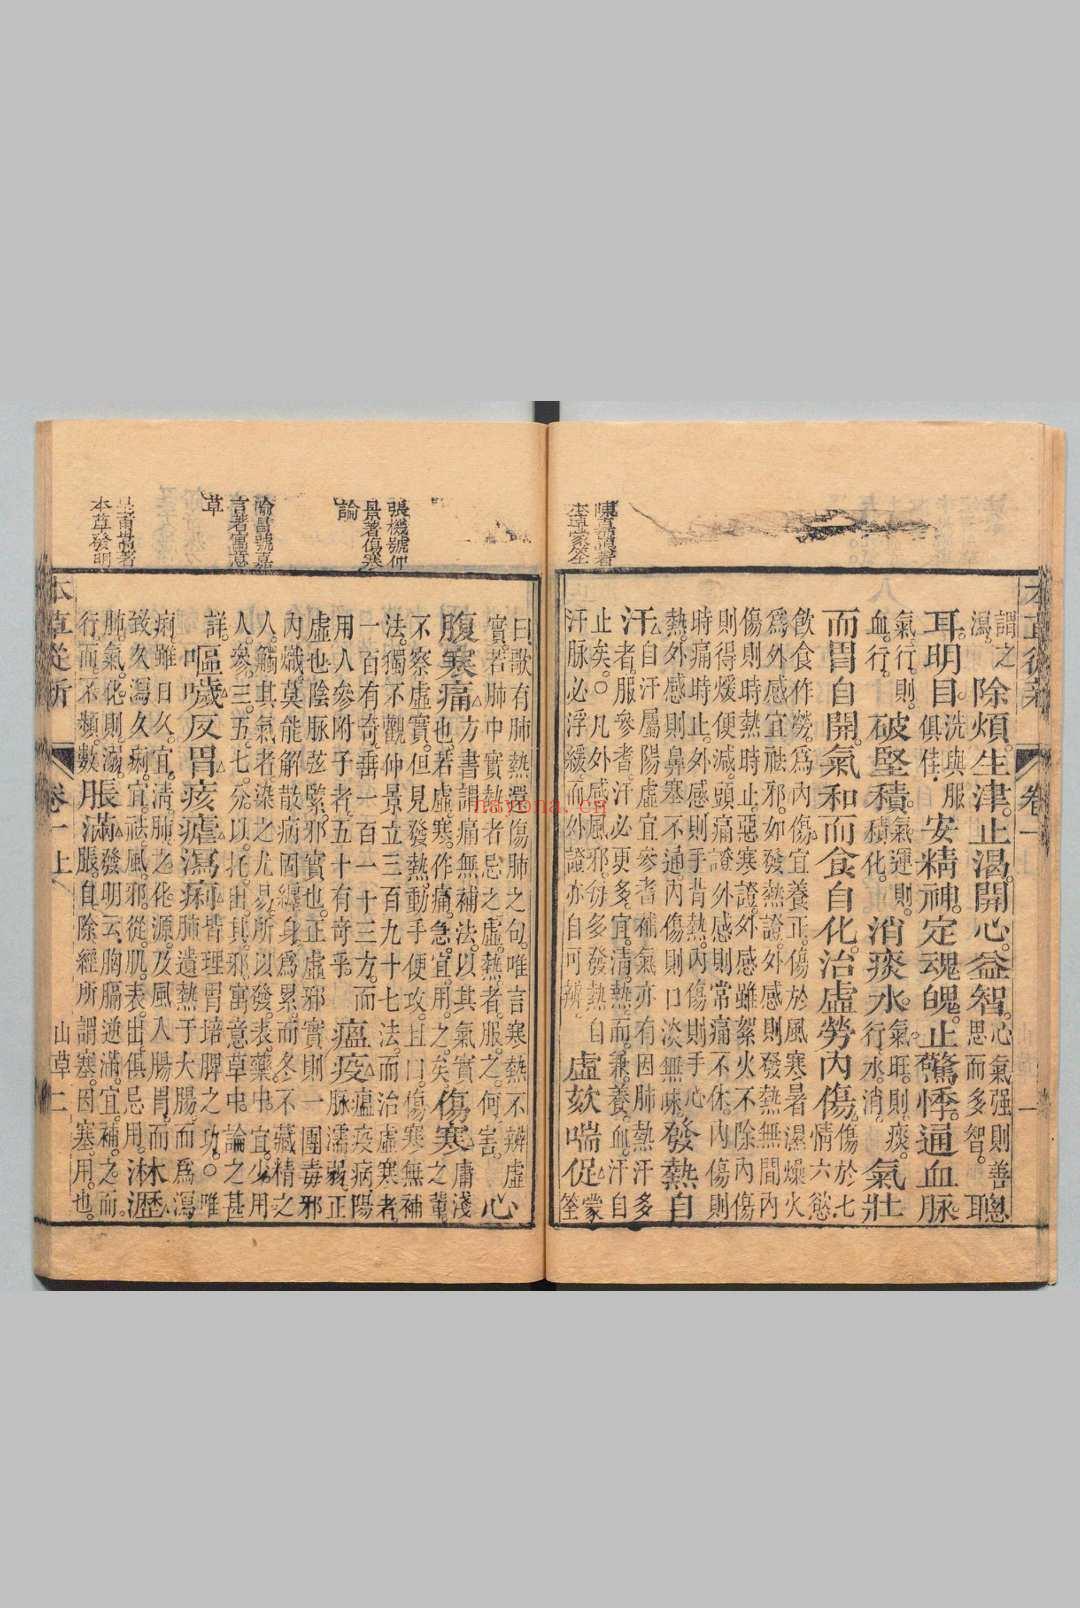 謂之
瀉。
除煩。生津。止渴。開心益智。
心氣强則善
思而多智。
聰
耳明目。
洗與服
俱佳.
安精神。定魂魄。止驚悸。通血脉。
氣行則
血行。
破堅積。
氣運則
積化。
消痰水。
氣旺則痰
行水消。
氣壯
而胃自開。氣和而食自化。治虛勞內傷
傷於七
情六慾
飲食作勞。爲內傷宜養正。傷於風寒暑濕燥火
爲外感宜祛邪。如發熱證。外感則發熱無間內
傷則時熱時止。惡寒證。外感雖絮火不除內傷
則得煖便減。頭痛證。外感則常痛不休。內傷則
時痛時止。外感則手背熱。內傷則手心
熱。外感則鼻塞不通。內傷則口淡無味。
發熱自
汗
自汗屬陽虛宜參耆補氣亦有因肺熱汗多
者。服參耆。汗必更多。宜清熱。而兼養血。汗自
止矣。○凡外感風邪。每多發熱自
汗脉必浮緩而外證亦自可辨。
虛欬喘促
蒙
筌
陳嘉謨著
本草蒙筌
曰歌有肺熱還傷肺之句。唯言寒熱不辨虛
實若肺中實熱者忌之。虛熱者。服之。何害。
心
腹寒痛
方書謂痛無補法。以其氣實
也。若虛寒。作痛。急宜用之矣。
傷寒
庸淺
之輩。
不察虛實。但見發熱。動手便攻。且曰傷寒無補
法。獨不觀仲景立三百九十七法而治虛寒者
一百有奇。垂一百一十三方。而
用人參附子者。五十有奇乎。
瘟疫
瘟疫病陽
脉濡弱。正
虛也陰脉弦緊。邪實也。正虛邪實則一團毒邪
內熾。莫能解散病固纏身爲累而冬不藏精之
人。觸其氣者染之尤易。所以發表藥中宜少用
人參。三。五。七分。以托出其邪寓意草中。論之甚
詳。
嘔噦反胃痎瘧瀉痢
皆理胃培脾之功。○唯
肺遺熱于大腸而爲瀉
痢雖日久。宜清肺之化源。及風入腸胃。而
致久瀉久痢。宜祛風邪。從肌表出。俱忌用。
淋瀝
肺氣化則溺
行。而不頻數
脹滿
發明云。胸膈逆滿。宜補之。而
脹自除。經所謂塞因塞用也。
張機號仲
景著傷寒
論
喻昌號嘉
言著寓意
草
皇甫嵩著
本草發明
本草從新
卷一上
山草二
nayona.cn